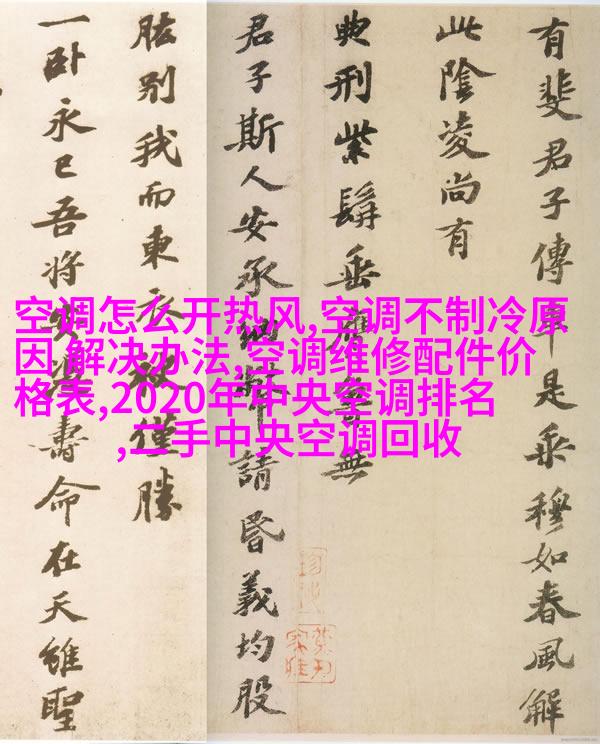 空调怎么开热风,空调不制冷原
因 解决办法,空调维修配件价
格表,2020年中央空调排名
,二手中央空调回收
有斐君子傳車是乘穆如春風解
此陰淩尚有
典刑紫髯垂膺魯無
君子斯人安承納幣請昏義均股
肱别我而東衣袂僅勝
一卧永已吾將安憑壽命在天雖聖